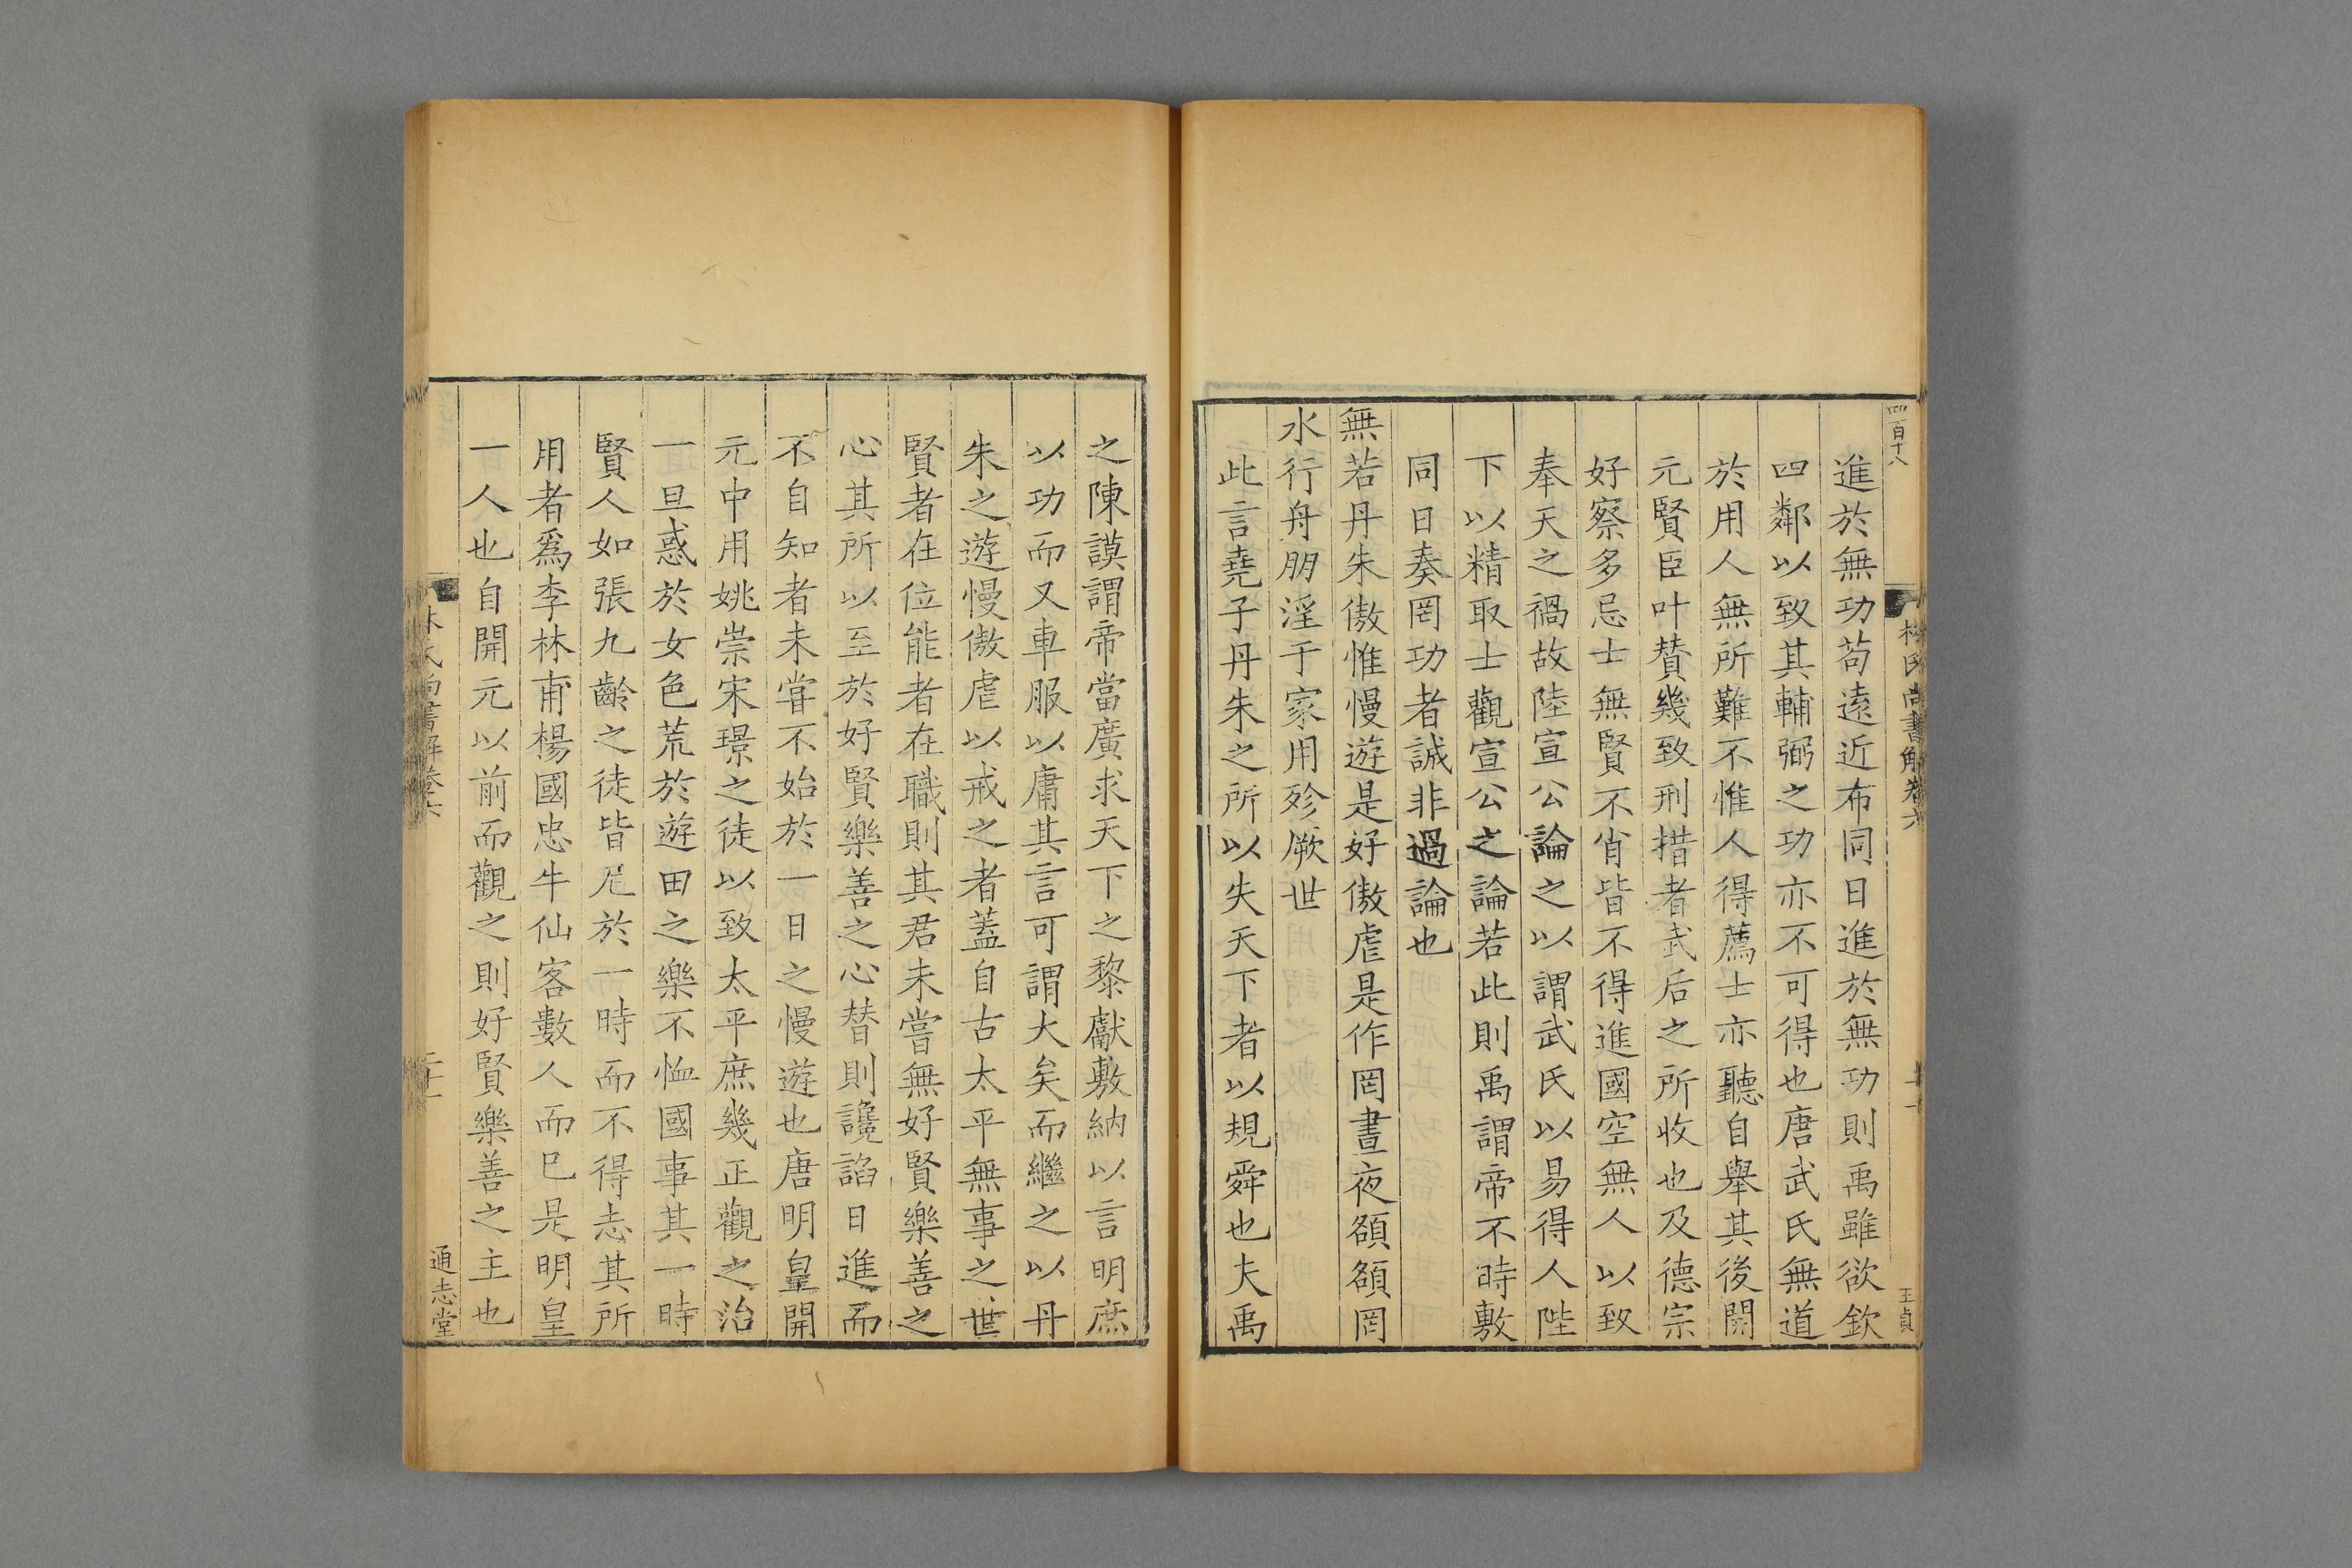 四百十八
林氏尚書解卷六
王貞
進於無功苟遠近布同日進於無功則禹雖欲欽
四鄰以致其輔弼之功亦不可得也唐武氏無道
於用人無所難不惟人得薦士亦聽自舉其後開
元賢臣叶賛幾致刑措者武后之所收也及德宗
好察多忌士無賢不肖皆不得進國空無人以致
奉天之禍故陸宣公論之以謂武氏以易得人陛
下以精取士觀宣公之論若此則禹謂帝不時敷
同日奏罔功者誠非過論也
無若丹朱傲惟慢遊是好傲虐是作罔晝夜頟頟罔
水行舟朋淫于家用殄厥世
此言堯子丹朱之所以失天下者以規舜也夫禹
之陳謨謂帝當廣求天下之黎獻敷納以言明庶
以功而又車服以庸其言可謂大矣而繼之以丹
朱之遊慢傲虐以戒之者蓋自古太平無事之世
賢者在位能者在職則其君未嘗無好賢樂善之
心其所以至於好賢樂善之心替則讒諂日進而
不自知者未嘗不始於一日之慢遊也唐明皇開
元中用姚崇宋璟之徒以致太平庶幾正觀之治
一旦惑於女色荒於遊田之樂不恤國事其一時
賢人如張九齡之徒皆戹於一時而不得志其所
用者爲李林甫楊國忠牛仙客數人而已是明皇
一人也自開元以前而觀之則好賢樂善之主也
林氏尚書解卷六
通志堂